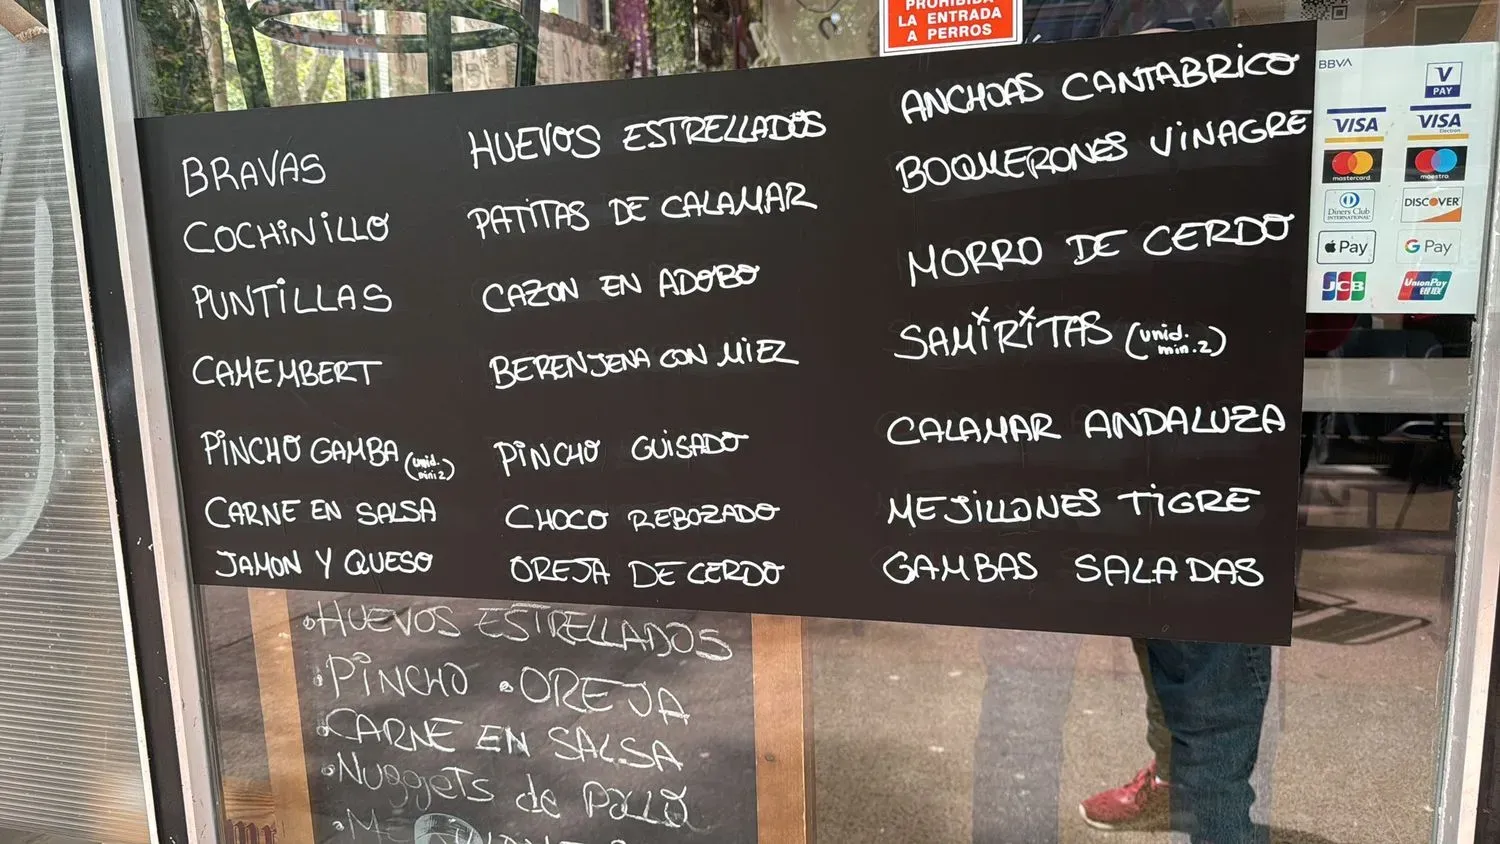 PROHIBIDA
LA ENTRADA
A PERROS
BRAVAS
COCHINILLO
PUNTILLAS
CAMEMBERT
PINCHO GAMBA (unid. min: 2)
CARNE EN SALSA
JAMON Y QUESO
HUEVOS ESTRELLADOS
PATITAS DE CALAMAR
CAZON EN ADOBO
BERENJENA CON MIEL
PINCHO GUISADO
CHOCO REBOZADO
OREJA DE CERDO
ANCHOAS CANTABRICO
BOQUERONES VINAGRE
MORRO DE CERDO
SAMIRITAS (unid. min. 2)
CALAMAR ANDALUZA
MEJILLONES TIGRE
GAMBAS SALADAS
BBVA
V PAY
VISA
VISA Electron
mastercard
maestro
Diners Club INTERNATIONAL
DISCOVER
Pay
G Pay
JCB
UnionPay 银联
HUEVOS ESTRELLADOS
PINCHO • OREJA
CARNE EN SALSA
NUGGETS de POLLO